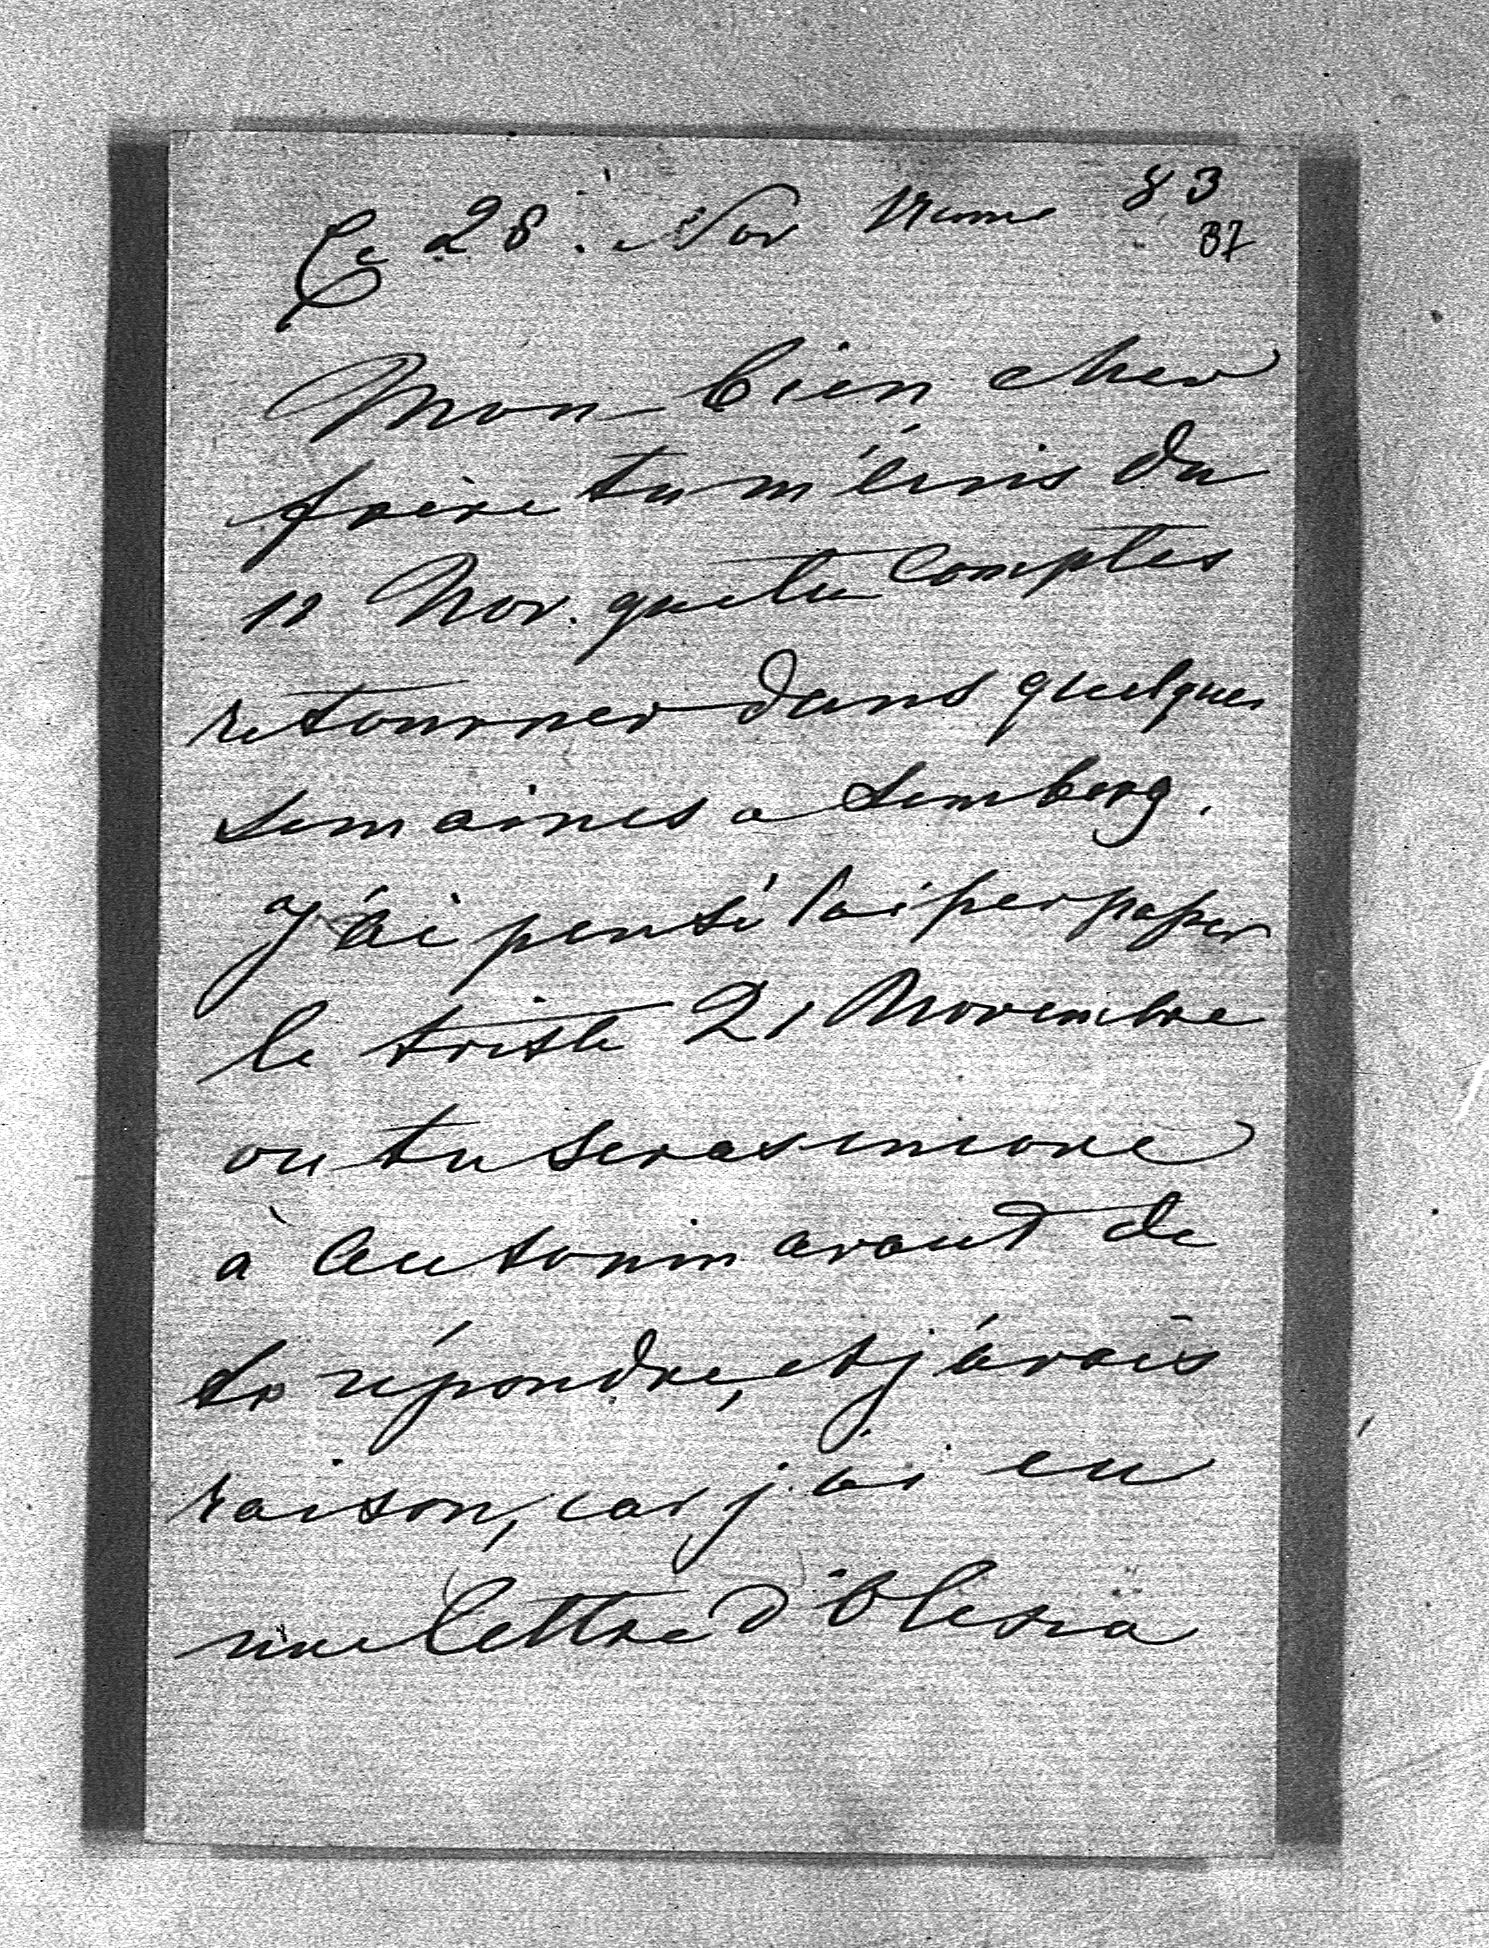 Ce 28. Nov Vienne 83
37
Mon bien cher
frère tu m'écris du
12 Nov. que tu comptes
retourner dans quelques
semaines a Lemberg.
J'ai pensé laisser passer
le triste 21 Novembre
ou tu seras encore
à Antonin avant de
te répondre, et j'avais
raison, car j'ai eu
une lettre d'Olesia